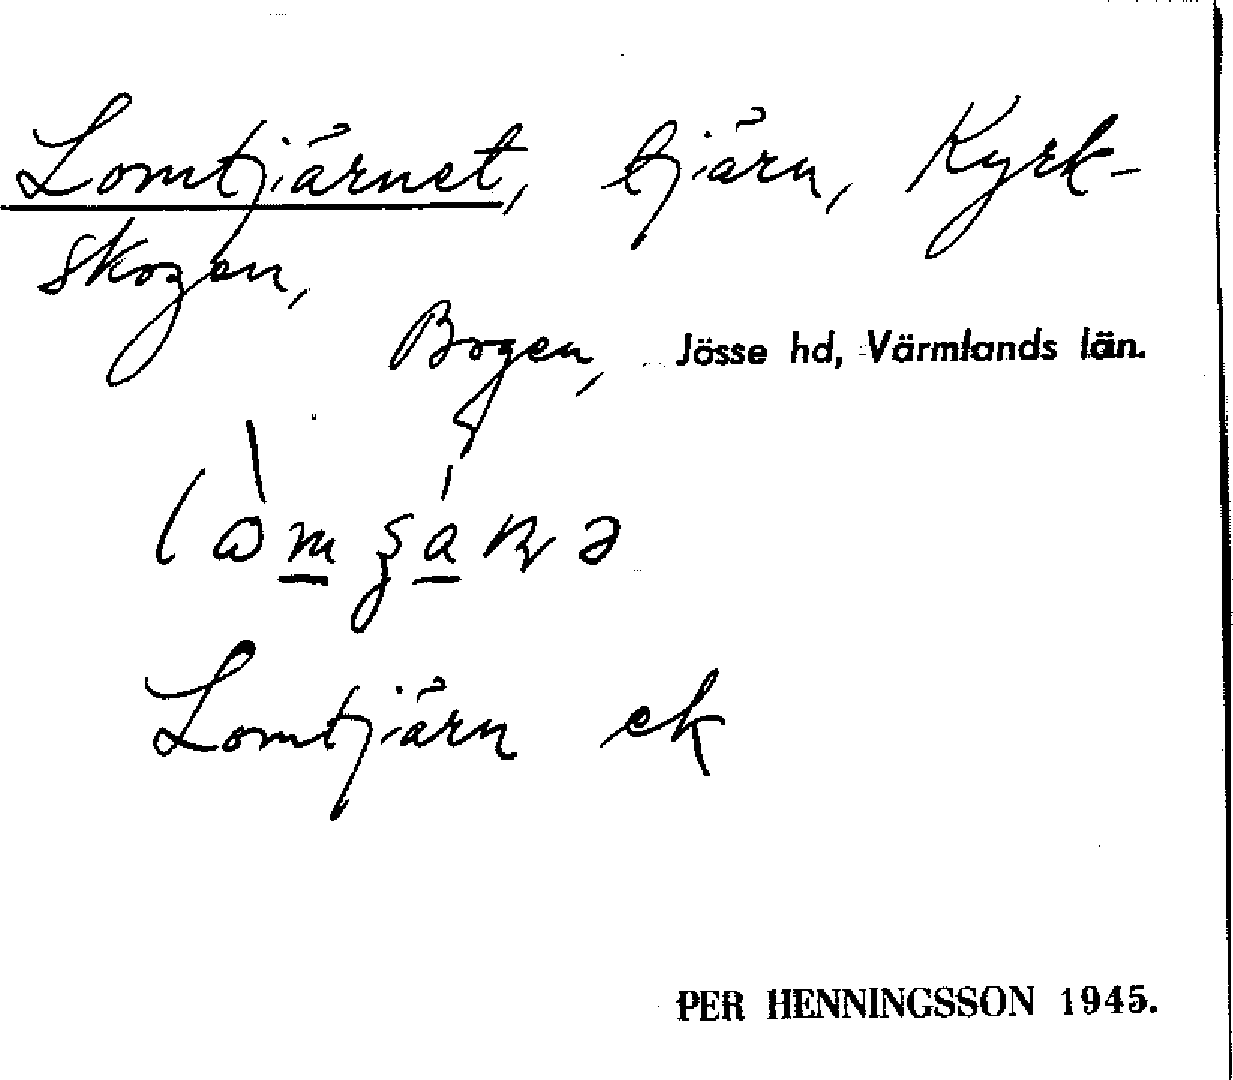 Lomtjärnet, tjärn, Kyrk-
skogen,
Bogen, Jösse hd, Värmlands län.
Lomtjärn ek
PER HENNINGSSON 1945.